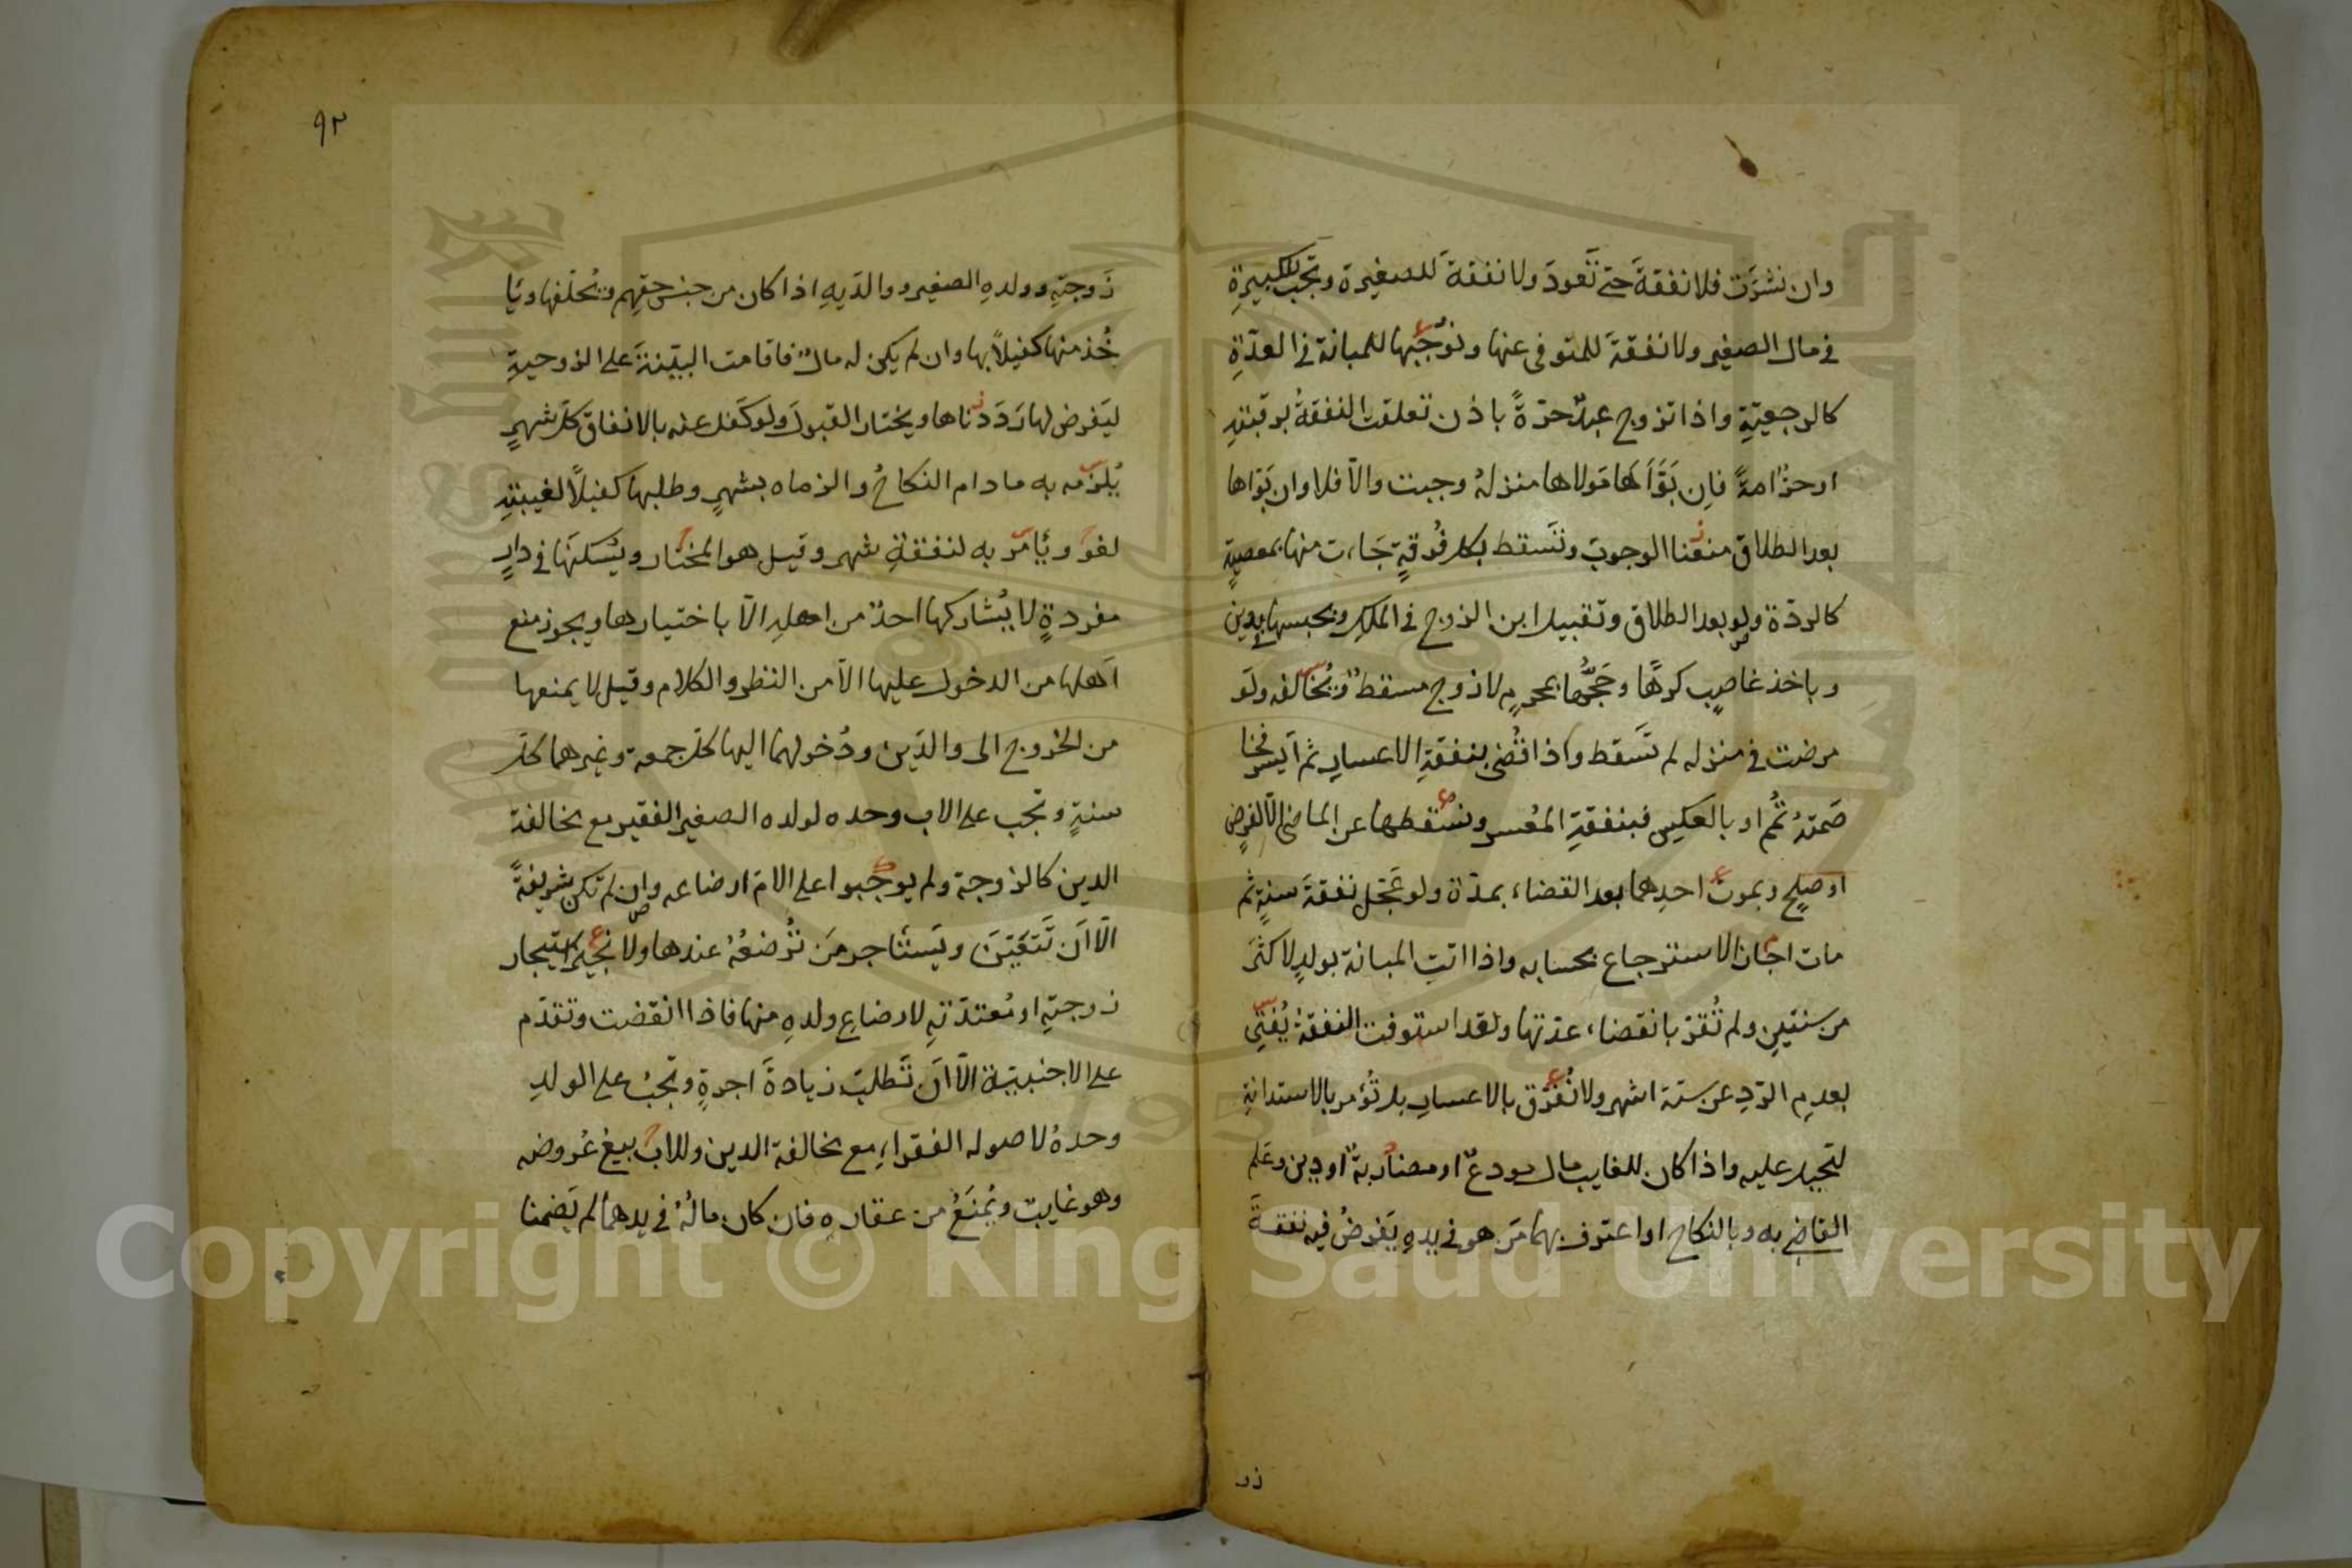 وان نشزَت فلا نفقةَ حتى تَعودَ ولا نفقةَ للصغيرة وتجب للكبيرةِ
في مال الصغير ولا نفقةَ للمتوفى عنها ونُوجبُها للمبانة في العدّةِ
كالرجعيّةِ واذا تزوج عبدٌ حرّةً باذن تعلقت النفقةُ برقبتهِ
او حرٌّ امةً فاِن بَوَّأَها مَولاها منزلهُ وجبت والّا فلا وان بَوّاها
بعد الطلاق منعنا الوجوبَ وتَسقط بكل فُرقةٍ جَاءت منها بمعصيةٍ
كالردّة ولو بعد الطلاق وتقبيل ابن الزوج في الملكِ وبحبسها بدين
وباخذ غاصبٍ كرهًا وحَجُّها بمحرمٍ لا زوج مسقطٌ ويُخالفه ولَو
مرضت في منزله لم تَسقط واذا قُضى بنفقةِ الاعسارِ ثم اَيسر فخا
صَمتهُ تُمُّ او بالعكسِ فبنفقةِ المُعسر ونُسقطها عن الماضى الّا لفرضٍ
او صلحٍ وبموت احدِهما بعد القضاء بمدّة ولو عَجّل نفقةَ سنةٍ ثم
مات اجاز الاسترجاع بحسابه واذا اتتِ المبانة بولدٍ لاكثرَ
من سنتينِ ولم تُقرّ بانقضاء عدتها ولقد استوفت النفقةَ يُفتى
بعدمِ الردِ عن ستة اشهر ولا نُفرّق بالاعسارِ بل تُؤمر بالاستدانةِ
لتحيل عليه واذا كان للغايب مال مودعٌ او مضاربةٌ او دين وعَلم
القاضي به وبالنكاح او اعترف بهما مَن هو في يدهِ يَفرضُ فيه نفقةَ
زو
٩٢
زَوجتِهِ وولدهِ الصغير ووالدَيهِ اذا كان من جنس حقِهم ويُحلّفها ويَا
خُذ منها كفيلاً بها وان لم يكن له مالٌ فاقامت البيّنةَ على الزوجيةِ
ليَفرض لها رَدَدناها ويختار القبولَ ولو كَفل عنه بالانفاق كلَّ شهرٍ
يُلزمه به ما دام النكاحُ والزماه بشهرٍ وطلبها كفيلاً لغيبتهِ
لغوٌ ويَأمر به لنفقةِ شهر وقيل هو المختار ويُسكنَها في دارٍ
مفردةٍ لا يُشاركها احدٌ من اهلهِ الّا باختيارها ويجوز منع
اَهلها من الدخول عليها الّا من النظر والكلام وقيل لا يمنعها
من الخروج الى والدَين ودُخولهما اليها كلّ جمعة وغيرهما كلّ
سنةٍ وتجب على الاب وحده لولده الصغير الفقير مع مخالفة
الدين كالزوجة ولم يوجبوا على الام ارضاعه وان لم تكن شريفةً
الّا اَن تَتعيّنَ ويَستأجر مَن تُرضعُهُ عندها ولا نُجيز استيجار
زوجتهِ او مُعتدّتهِ لارضاعِ ولدهِ منها فاذا انقضت وتقدّم
على الاجنبيّة الّا اَن تَطلبَ زيادةَ اجرةٍ وتجبُ على الولدِ
وحدهُ لاصوله الفقراءِ مع مخالفة الدين وللاب بيعُ عُروضه
وهو غايبٌ ويُمنَعُ من عقارهِ فان كان مالُهُ في يدهما لم يَضمنا
Copyright © King Saud University